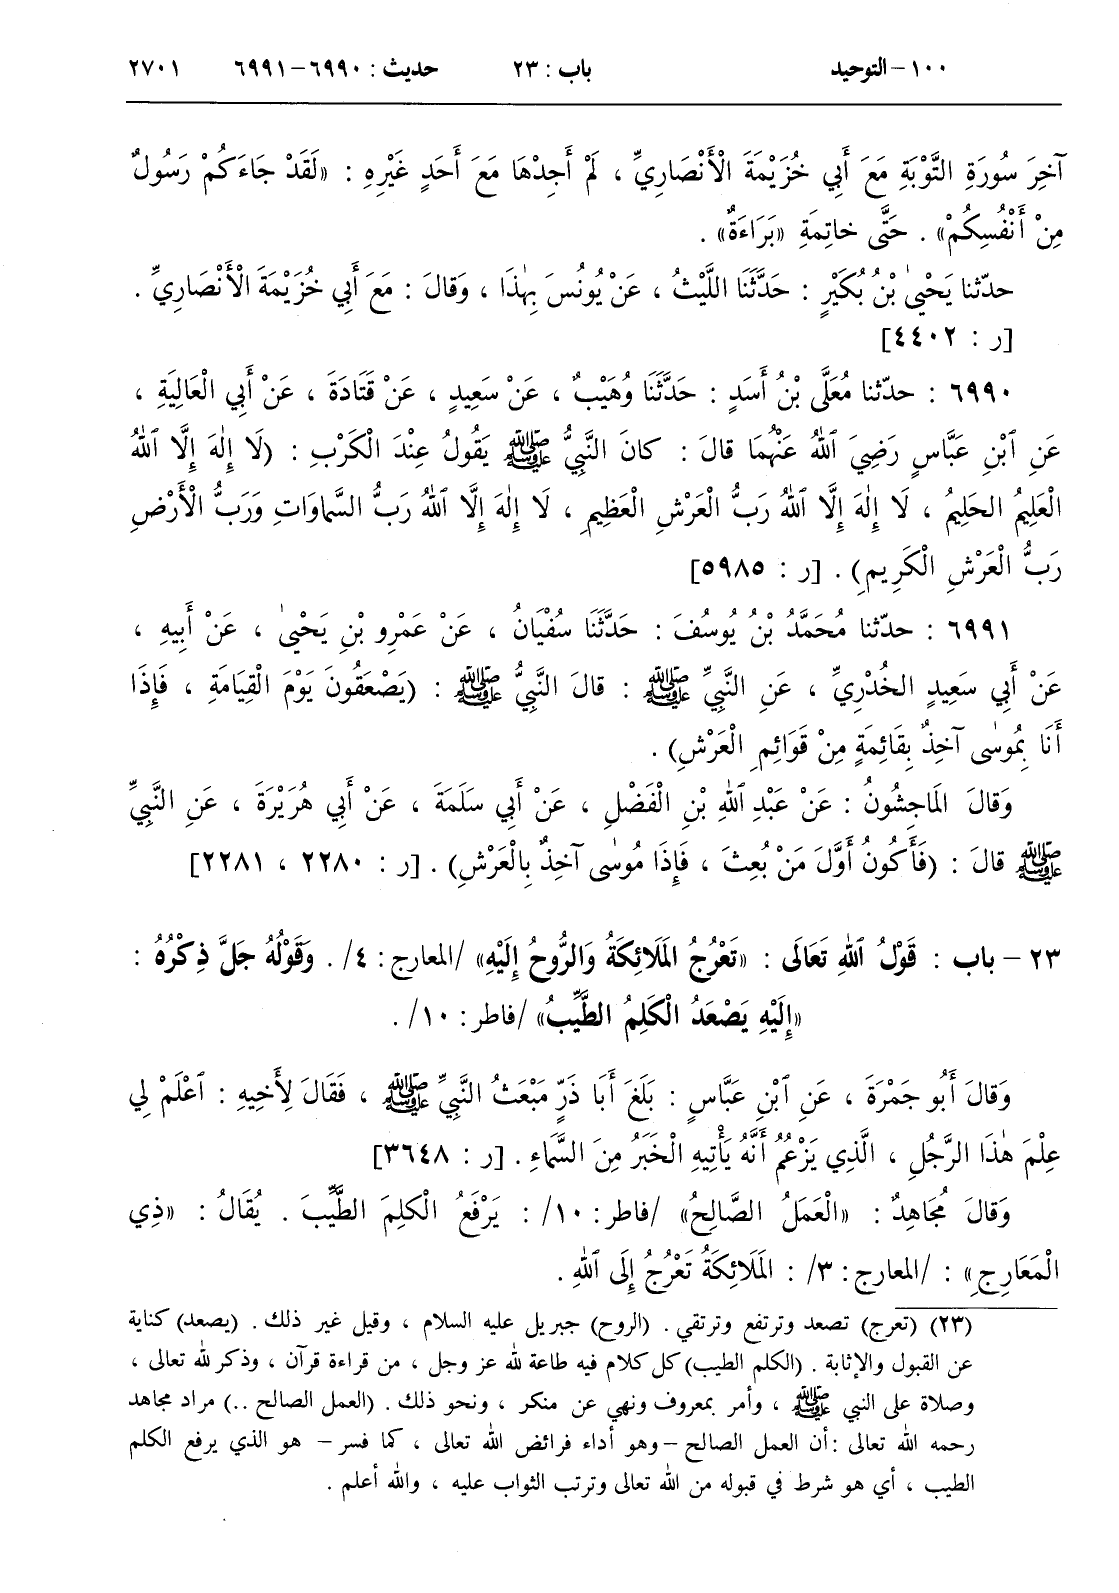 ١٠٠ – التوحيد باب : ٢٣ حديث : ٦٩٩٠–٦٩٩١ ٢٧٠١
آخِرَ سُورَةِ التَّوْبَةِ مَعَ أَبِي خُزَيْمَةَ الْأَنْصَارِيِّ ، لَمْ أَجِدْهَا مَعَ أَحَدٍ غَيْرِهِ : «لَقَدْ جَاءَكُمْ رَسُولٌ
مِنْ أَنْفُسِكُمْ» . حَتَّى خاتِمَةِ «بَرَاءَةٌ» .
حدّثنا يَحْيىٰ بْنُ بُكَيْرٍ : حَدَّثَنَا اللَّيْثُ ، عَنْ يُونُسَ بِهٰذَا ، وَقالَ : مَعَ أَبِي خُزَيْمَةَ الْأَنْصَارِيِّ .
[ر : ٤٤٠٢]
٦٩٩٠ : حدّثنا مُعَلَّى بْنُ أَسَدٍ : حَدَّثَنَا وُهَيْبٌ ، عَنْ سَعِيدٍ ، عَنْ قَتَادَةَ ، عَنْ أَبِي الْعَالِيَةِ ،
عَنِ ٱبْنِ عَبَّاسٍ رَضِيَ ٱللهُ عَنْهُمَا قالَ : كانَ النَّبِيُّ ﷺ يَقُولُ عِنْدَ الْكَرْبِ : (لَا إِلٰهَ إِلَّا ٱللهُ
الْعَلِيمُ الحَلِيمُ ، لَا إِلٰهَ إِلَّا ٱللهُ رَبُّ الْعَرْشِ الْعَظِيمِ ، لَا إِلٰهَ إِلَّا ٱللهُ رَبُّ السَّماوَاتِ وَرَبُّ الْأَرْضِ
رَبُّ الْعَرْشِ الْكَرِيمِ) . [ر : ٥٩٨٥]
٦٩٩١ : حدّثنا مُحَمَّدُ بْنُ يُوسُفَ : حَدَّثَنَا سُفْيَانُ ، عَنْ عَمْرِو بْنِ يَحْيىٰ ، عَنْ أَبِيهِ ،
عَنْ أَبِي سَعِيدٍ الخُدْرِيِّ ، عَنِ النَّبِيِّ ﷺ : قالَ النَّبِيُّ ﷺ : (يَصْعَقُونَ يَوْمَ الْقِيَامَةِ ، فَإِذَا
أَنَا بِمُوسٰى آخِذٌ بِقَائِمَةٍ مِنْ قَوَائِمِ الْعَرْشِ) .
وَقالَ المَاجِشُونُ : عَنْ عَبْدِ ٱللهِ بْنِ الْفَضْلِ ، عَنْ أَبِي سَلَمَةَ ، عَنْ أَبِي هُرَيْرَةَ ، عَنِ النَّبِيِّ
ﷺ قالَ : (فَأَكُونُ أَوَّلَ مَنْ بُعِثَ ، فَإِذَا مُوسٰى آخِذٌ بِالْعَرْشِ) . [ر : ٢٢٨٠ ، ٢٢٨١]
٢٣ – باب : قَوْلُ ٱللهِ تَعَالَى : «تَعْرُجُ المَلَائِكَةُ وَالرُّوحُ إِلَيْهِ» /المعارج : ٤/ . وَقَوْلُهُ جَلَّ ذِكْرُهُ :
«إِلَيْهِ يَصْعَدُ الْكَلِمُ الطَّيِّبُ» /فاطر : ١٠/ .
وَقالَ أَبُو جَمْرَةَ ، عَنِ ٱبْنِ عَبَّاسٍ : بَلَغَ أَبَا ذَرٍّ مَبْعَثُ النَّبِيِّ ﷺ ، فَقَالَ لِأَخِيهِ : ٱعْلَمْ لِي
عِلْمَ هٰذَا الرَّجُلِ ، الَّذِي يَزْعُمُ أَنَّهُ يَأْتِيهِ الْخَبَرُ مِنَ السَّمَاءِ . [ر : ٣٦٤٨]
وَقالَ مُجَاهِدٌ : «الْعَمَلُ الصَّالِحُ» /فاطر : ١٠/ : يَرْفَعُ الْكَلِمَ الطَّيِّبَ . يُقَالُ : «ذِي
الْمَعَارِجِ» : /المعارج : ٣/ : المَلَائِكَةُ تَعْرُجُ إِلَى ٱللهِ .
(٢٣) (تعرج) تصعد وترتفع وترتقي . (الروح) جبريل عليه السلام ، وقيل غير ذلك . (يصعد) كناية
عن القبول والإثابة . (الكلم الطيب) كل كلام فيه طاعة لله عز وجل ، من قراءة قرآن ، وذكر لله تعالى ،
وصلاة على النبي ﷺ ، وأمر بمعروف ونهي عن منكر ، ونحو ذلك . (العمل الصالح ..) مراد مجاهد
رحمه الله تعالى : أن العمل الصالح – وهو أداء فرائض الله تعالى ، كما فسر – هو الذي يرفع الكلم
الطيب ، أي هو شرط في قبوله من الله تعالى وترتب الثواب عليه ، والله أعلم .